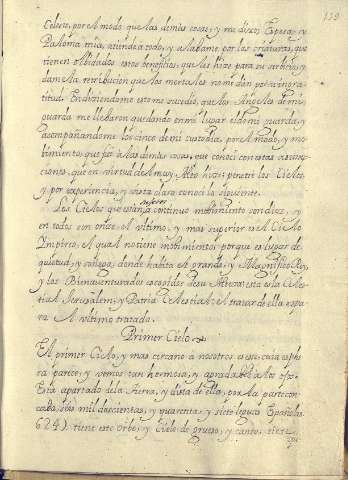 139
Celeste, por el modo que las demas cosas, y me dixo: Esposa, y
Paloma mia, atiende a todo, y alabame, por las criaturas, que
tienen olvidados estos beneficios, que les hize para su servicio, y
dame la retribucion que los mortales no me dan por su ingra-
titud. En diziendome esto me sucedio, que los Angeles de mi
guarda me llebaron quedando en mi lugar el de mi guarda, y
acompañandome los cinco de mi custodia, por el modo, y mo-
bimiento, que fui a las demas cosas, que conoci con estas
ciones, que en virtud del muy Alto hize: penetre los Cielos,
y por experiencia, y vista clara conoci lo siguiente.
Los Cielos que estan en continuo mobimiento son diez, y
en todos son onze el vltimo, y mas superior es el Cielo
Impireo, el qual no tiene mobimiento, porque es lugar de
quietud, y reposo, donde habita el grande, y Magnifico Rey,
y los Bienaventurados escogidos de su Alteza: esta es la Celes-
tial Jerusalem, y Patria Celestial: el tratar de ella espa-
ra el vltimo tratado.
Primer Cielo
El primer Cielo, y mas cercano a nosotros es ese, cuia esphe
ra parece, y vemos tan hermosa, y agradable a los ojos.
Esta apartado de la tierra, y dista de ella, por la parte con-
caba, seis mil duscientas, y quarenta, y siete leguas Españolas.
6247. tiene este orbe, y Cielo de grueso, y canto, siete